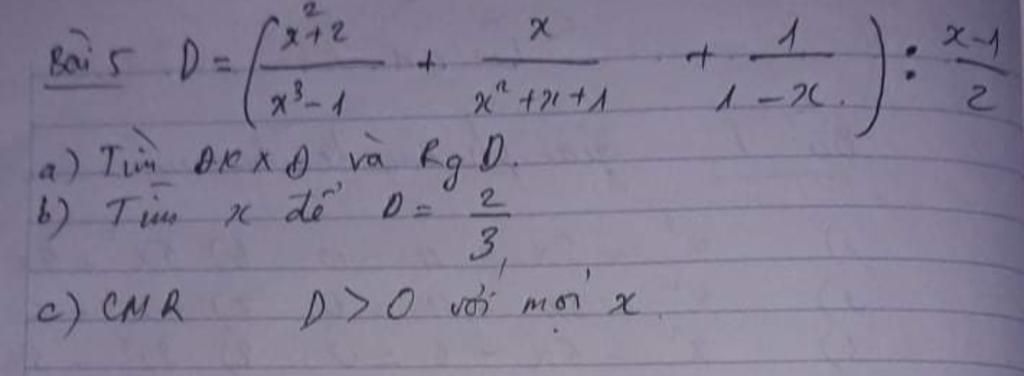 Bài 5 D = (x²+2 / x³-1 + x / x²+x+1 + 1 / 1-x) : x-1 / 2
a) Tìm ĐKXĐ và Rg D.
b) Tìm x để D = 2/3
c) CMR D > 0 với mọi x